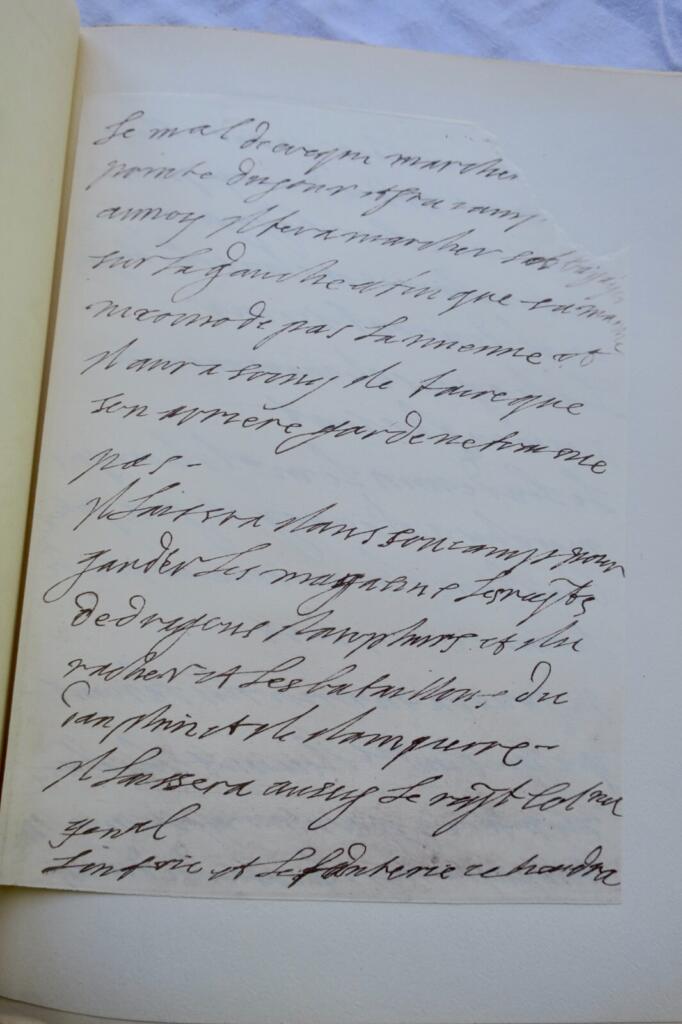 Le mal de crequi marchera
pointe du jour et fera
aumoy Il fera marcher ses bagages
sur la gauche afin que sa marche
nincomode pas la mienne et
Il aura soing de faire que
son arriere garde ne traisne
pas -
Il laissera dans son camp pour
garder les magasins les regts
de dragons dauphins et du
et les bataillons du
dauphin et de dampierre -
Il laissera aussy le regt Colonel
genal
et Lefanterie se tiendra